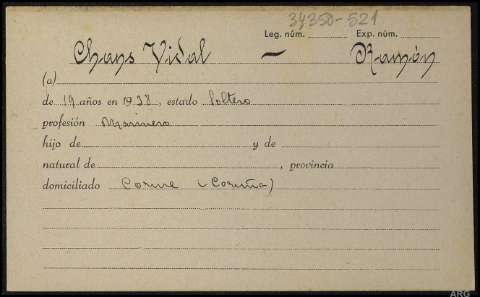 34350-521
Leg. núm. Exp. núm.
Chans Vidal — Ramón
(a)
de 19 años en 1938, estado Soltero
profesión Marinero
hijo de y de
natural de , provincia
domiciliado Corme (Coruña)
ARG